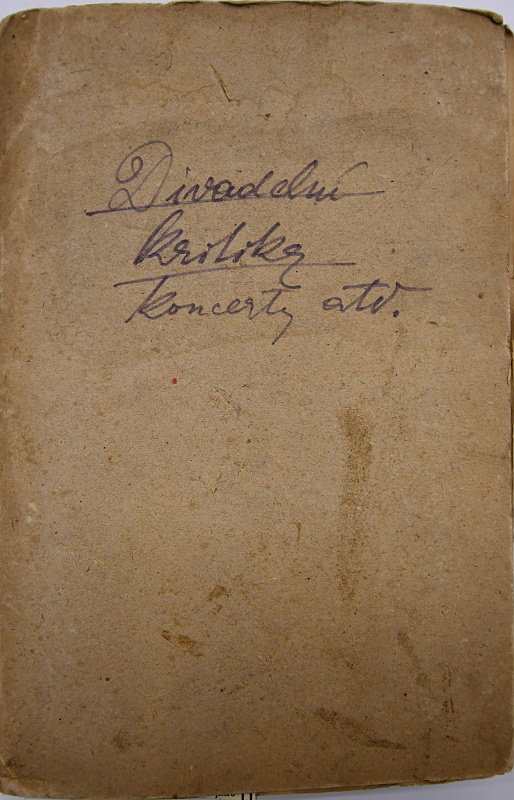 Divadelní
kritiky
koncerty atd.